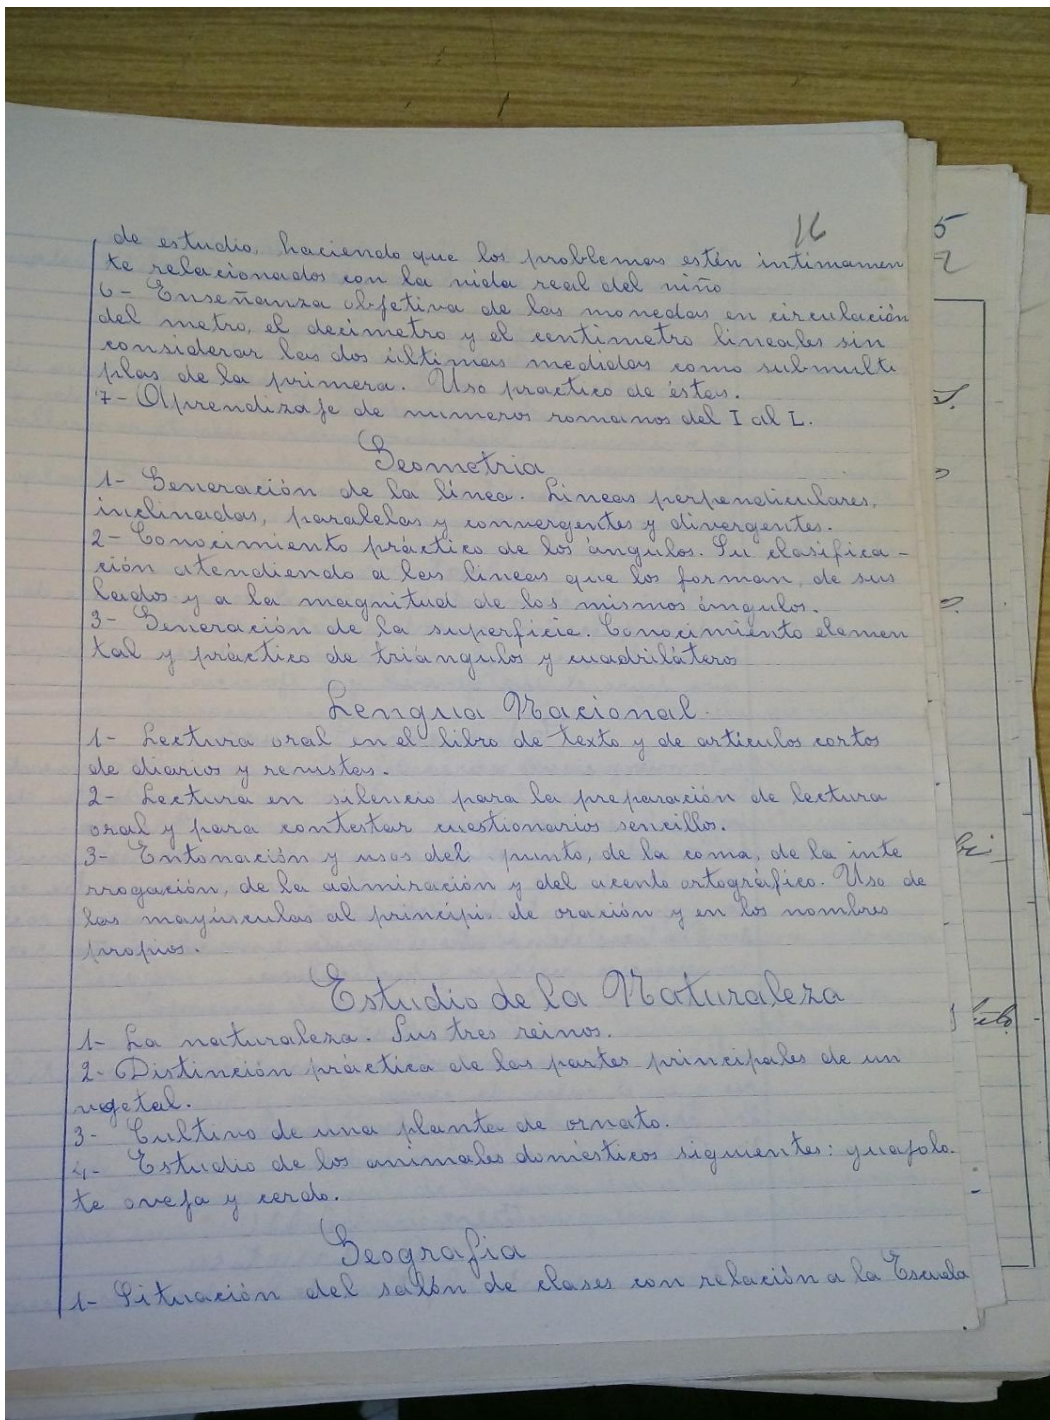 16
de estudio, haciendo que los problemas estén intimamen
te relacionados con la vida real del niño
6- Enseñanza objetiva de las monedas en circulación
del metro, el decimetro y el centimetro lineales sin
considerar las dos últimas medidas como submulti
plos de la primera. Uso practico de éstas.
7- Aprendizaje de numeros romanos del I al L.
Geometria
1- Generación de la línea. Lineas perpendiculares,
inclinadas, paralelas y convergentes y divergentes.
2- Conocimiento práctico de los ángulos. Su clasifica-
ción atendiendo a las líneas que los forman, de sus
lados y a la magnitud de los mismos ángulos.
3- Generación de la superficie. Conocimiento elemen
tal y práctico de triángulos y cuadriláteros
Lengua Nacional.
1- Lectura oral en el libro de texto y de artículos cortos
de diarios y revistas.
2- Lectura en silencio para la preparación de lectura
oral y para contestar cuestionarios sencillos.
3- Entonación y usos del punto, de la coma, de la inte
rrogación, de la admiración y del acento ortográfico. Uso de
las mayúsculas al principi de oración y en los nombres
propios.
Estudio de la Naturaleza
1- La naturaleza. Sus tres reinos.
2- Distinción práctica de las partes principales de un
vegetal.
3- Cultivo de una planta de ornato.
4- Estudio de los animales domésticos siguientes: guajolo-
te oveja y cerdo.
Geografia
1- Situación del salón de clases con relación a la Escuela